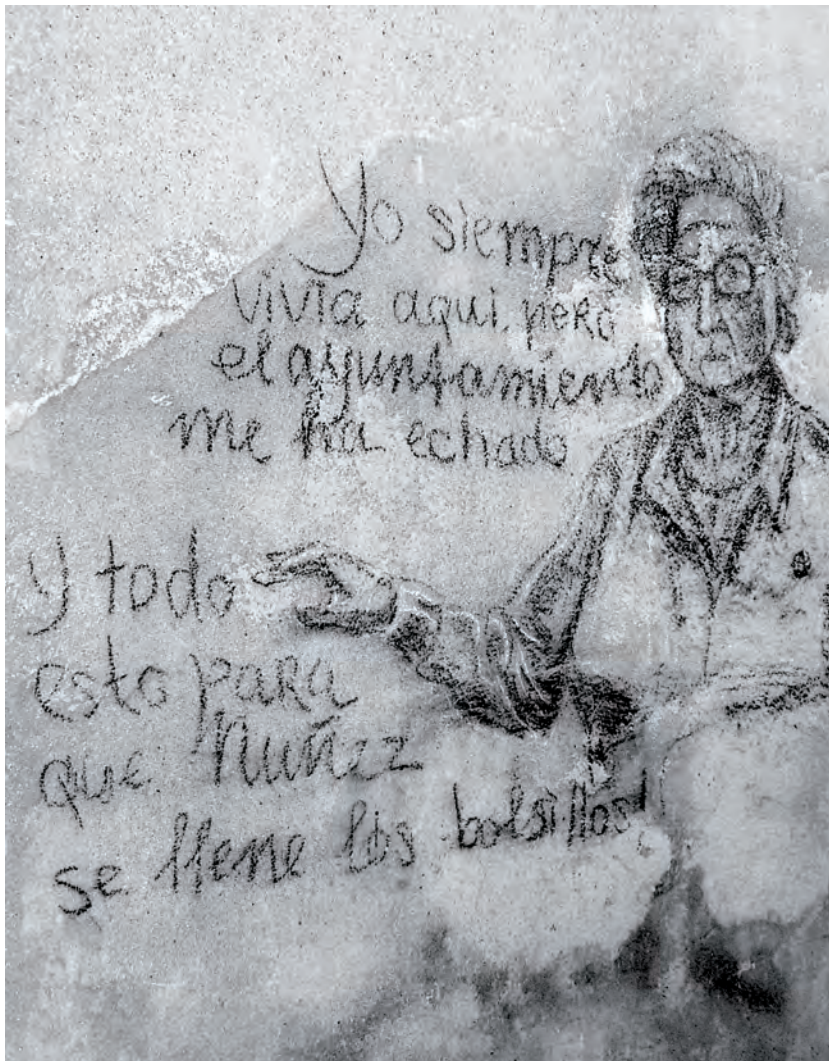 Yo siempre
vivia aqui, pero
el ayuntamiento
me ha echado
y todo
esto para
que Nuñez
se llene los bolsillos!